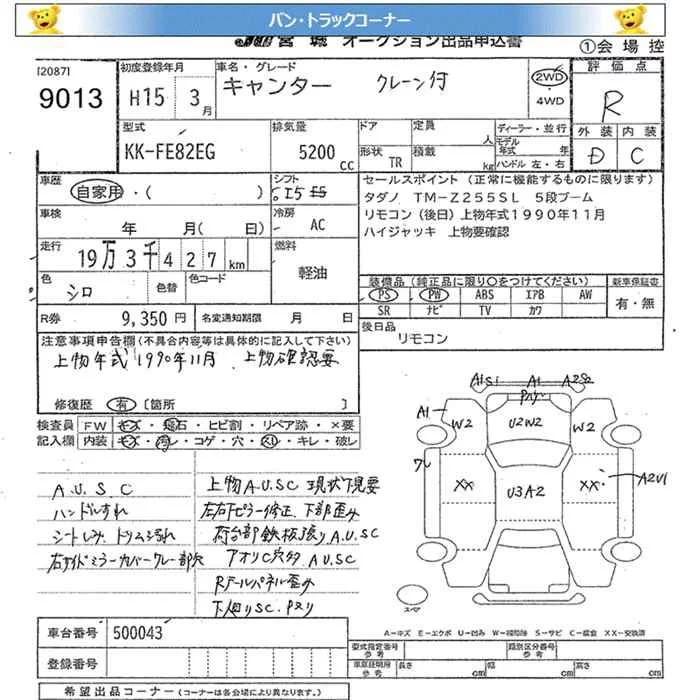 バン・トラックコーナー
JU 宮城 オークション出品申込書
①会場控
[2087]
9013
初度登録年月
H15 3月
車名・グレード
キャンター クレーン付
2WD
・
4WD
評価点
R
外装 内装
D C
型式
KK-FE82EG
排気量
5200cc
ドア
形状 TR
定員
人
積載
kg
ディーラー・並行
モデル年式 年
ハンドル 左・右
車歴
自家用・( )
シフト
I5
車検
年 月( 日)
冷房
AC
走行
19万3千427km
燃料
軽油
色
シロ
色替
色コード
R券
9,350円
名変通知期限 月 日
セールスポイント (正常に機能するものに限ります)
タダノ TM-Z255SL 5段ブーム
リモコン(後日)上物年式1990年11月
ハイジャッキ 上物要確認
装備品(純正品に限り○をつけてください)
PS PW ABS エアB AW
SR ナビ TV カワ
新車保証書
有・無
後日品
リモコン
注意事項申告欄(不具合内容等は具体的に記入して下さい)
上物年式1990年11月 上物確認要
修復歴 有 [箇所 ]
検査員記入欄
FW キズ・飛石・ヒビ割・リペア跡・×要
内装 キズ・汚レ・コゲ・穴・スレ・キレ・破レ
A.U.S.C
ハンドルすれ
シートしみ、ドリムる汚れ
右サイドミラーカバークレー部欠
上物A.U.SC 現状下見要
左右下ピラー修正、下部歪み
荷台部鉄板張りA.U.SC
アオリC穴多 A.U.SC
Rテールパネル歪み
下廻りSC.Pヌリ
A1S1 A1 A2S2
Pハゲ
A1
W2
U2W2
W2
ワレ
XX
U3A2
XX
A2U1
スペア
A-キズ E-エクボ U-凹み W-補修跡 S-サビ C-腐食 XX-交換済
車台番号 500043
登録番号
型式指定番号
参考
類別区分番号
参考
車庫証明用
参考
長さ cm
幅 cm
高さ cm
希望出品コーナー(コーナーは各会場により異なります。)